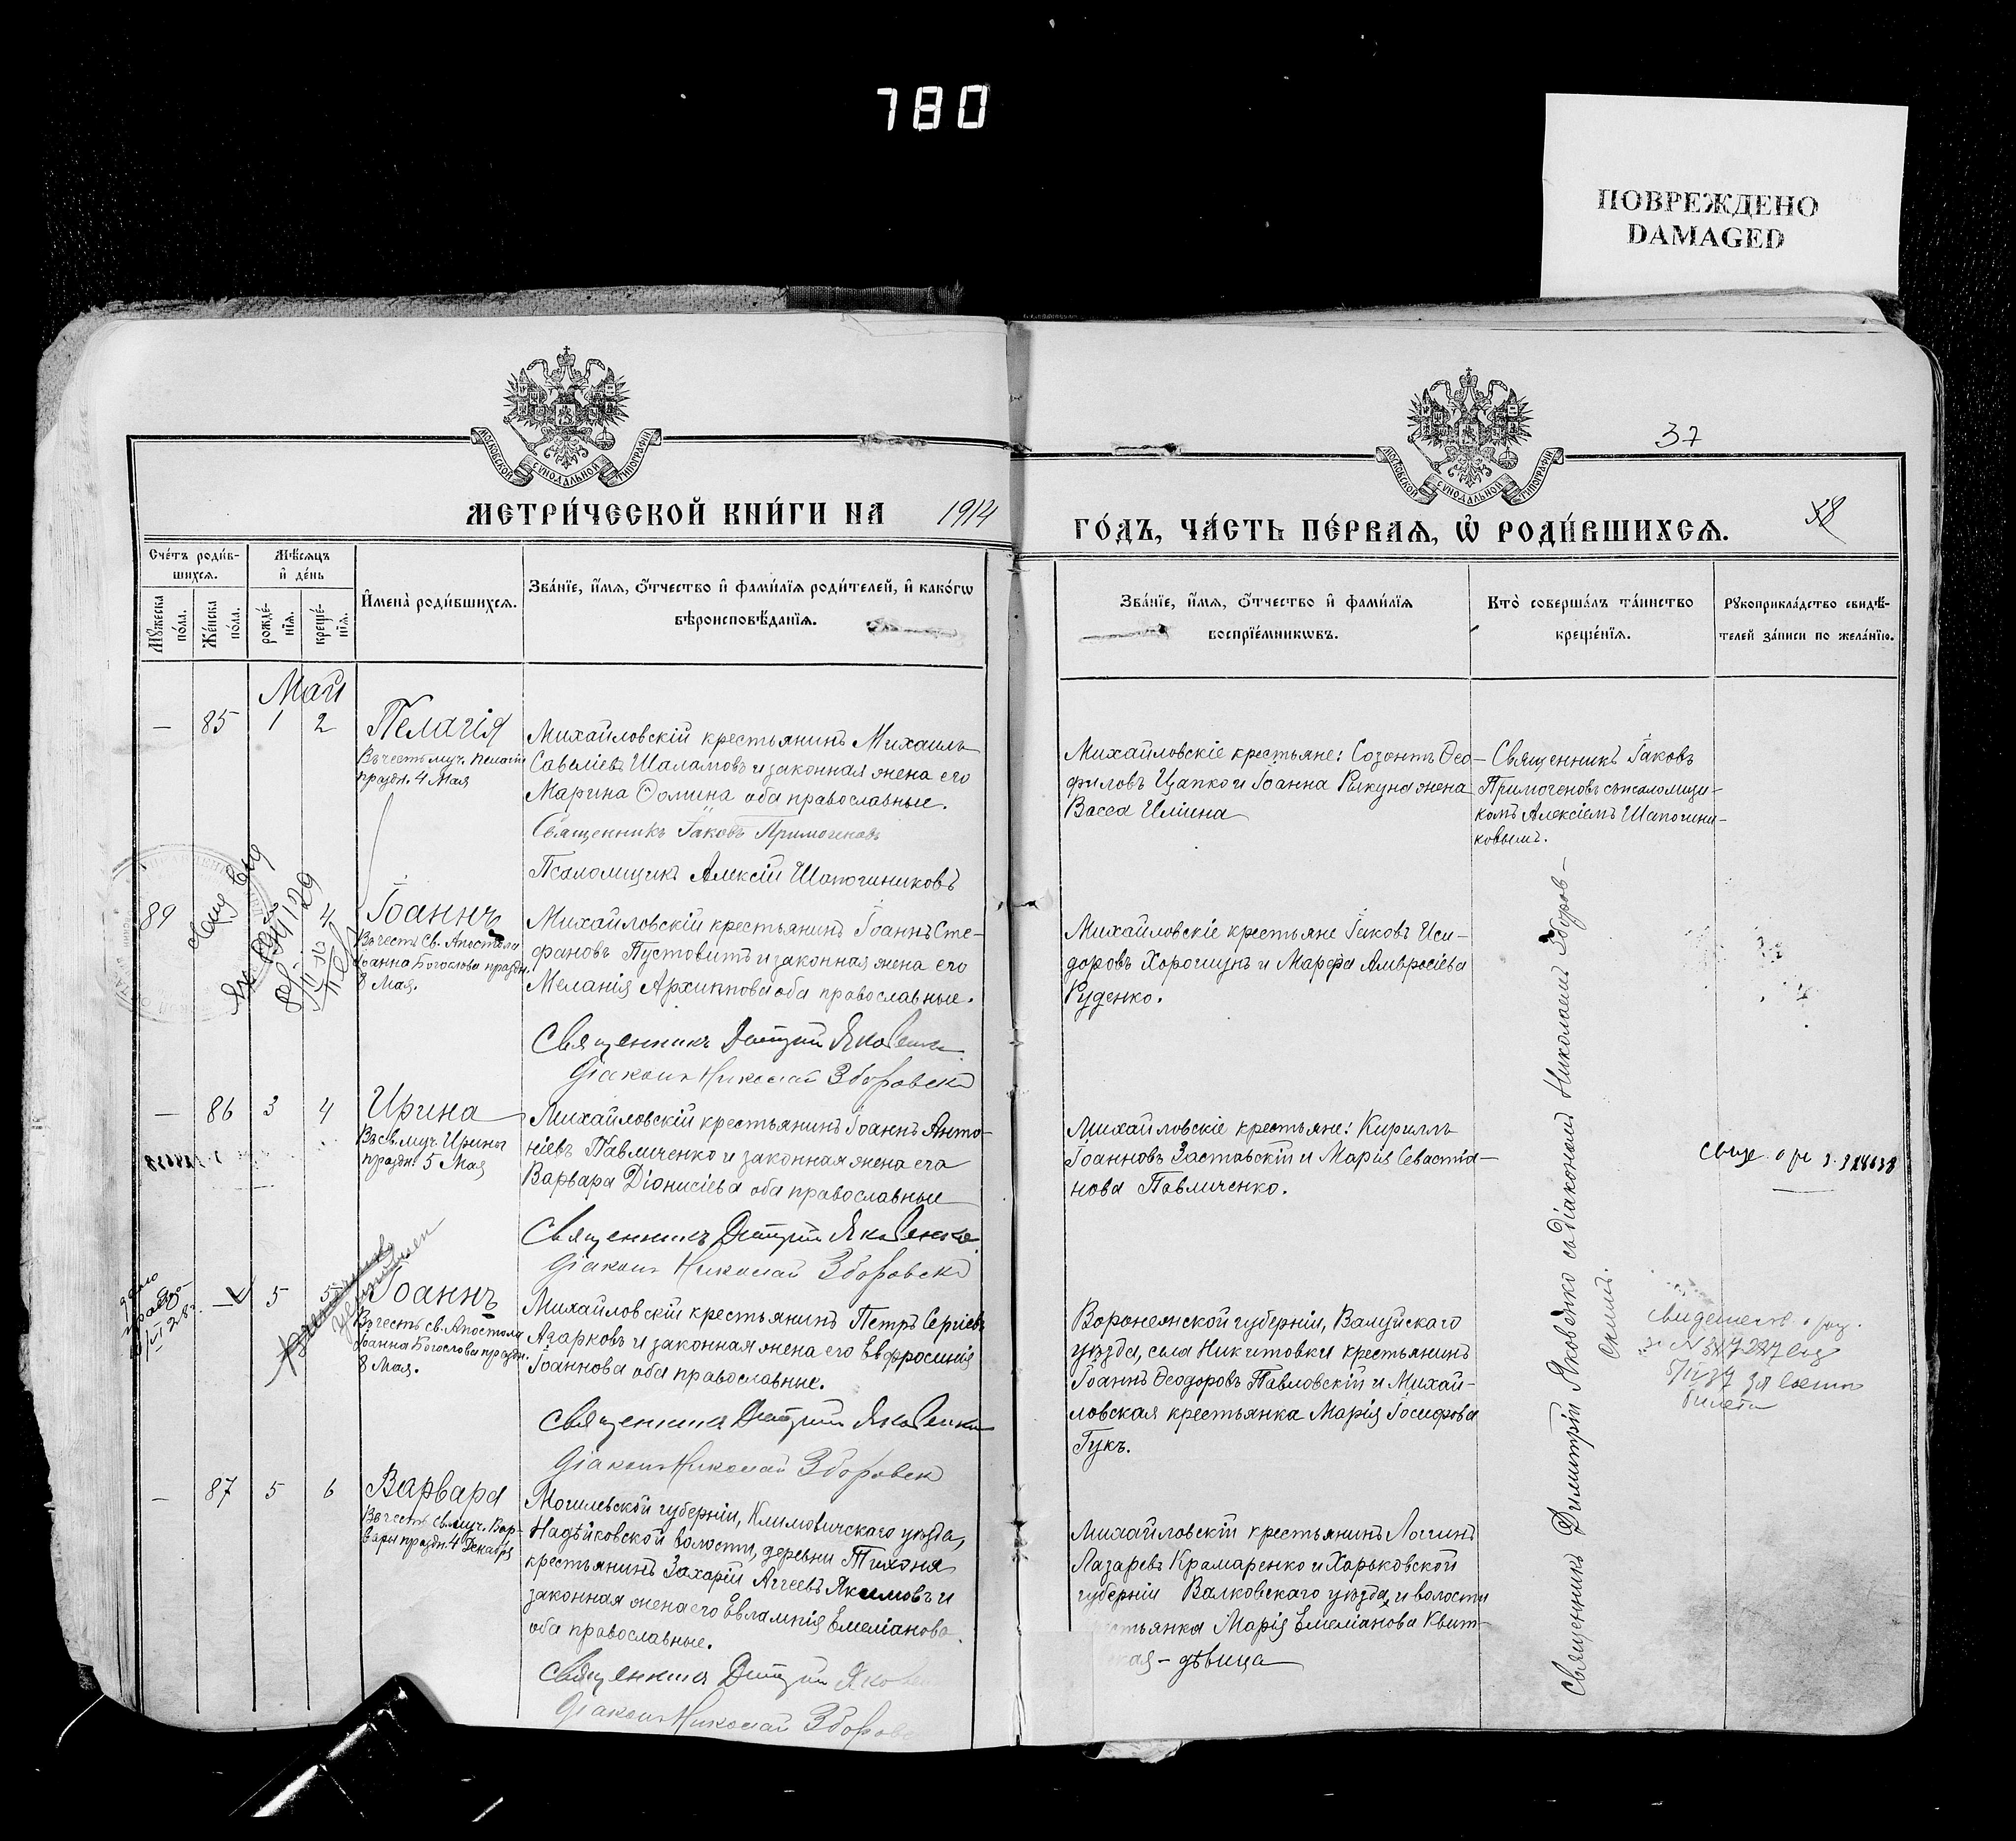 780
ПОВРЕЖДЕНО
DAMAGED
МОСКОВСКОЙ СѴНОДАЛЬНОЙ ТИПОГРАФІИ
МОСКОВСКОЙ СѴНОДАЛЬНОЙ ТИПОГРАФІИ
37
МЕТРИ́ЧЕСКОЙ КНИ́ГИ НА 1914
ГО́ДЪ, ЧА́СТЬ ПЕ́РВАѦ, Ѡ҆ РОДИ́ВШИХСѦ.
Сче́тъ роди́в-
шихсѧ.
Мѣ́сѧцъ
и҆ де́нь
Мꙋ́жеска
по́ла.
Же́нска
по́ла.
рожде́-
нїѧ.
креще́-
нїѧ.
И҆мена̀ роди́вшихсѧ.
Зва́нїе, и҆́мѧ, ѻ҆́тчество и҆ фами́лїѧ роди́телей, и҆ како́гѡ
вѣроисповѣ́данїѧ.
Зва́нїе, и҆́мѧ, ѻ҆́тчество и҆ фами́лїѧ
воспрїе́мникѡвъ.
Кто̀ соверша́лъ та́инство
креще́нїѧ.
Рꙋкоприкла́дство свидѣ́-
телей за́писи по жела́нїю.
Май
— 85 1 2 Пелагія
Въ честь муч. Пелагіи
праздн. 4 Мая
Михайловскій крестьянинъ Михаилъ
Савеліевъ Шаламовъ и законная жена его
Марина Ѳомина оба православные.
Священникъ Іаковъ Примогеновъ
Псаломщикъ Алексій Шапошниковъ
Михайловскіе крестьяне: Созонтъ Ѳео-
филовъ Цапко и Іоанна жена
Васса Иліина
Священникъ Іаковъ
Примогеновъ съ псаломщи-
комъ Алексіемъ Шапошни-
ковымъ.
89 4 Іоаннъ
Въ честь Св. Апостола
Іоанна Богослова праздн.
8 Мая.
Михайловскій крестьянинъ Іоаннъ Сте-
фановъ Пустовитъ и законная жена его
Меланія Архиппова оба православные.
Священникъ Димитрій Яковенко
Діаконъ Николай Зборовскій
Михайловскіе крестьяне Іаковъ Иси-
доровъ и Марфа Амвросіева
Руденко.
— 86 3 4 Ирина
Въ св. муч. Ирины
праздн. 5 Мая
Михайловскій крестьянинъ Іоаннъ Анто-
ніевъ Павличенко и законная жена его
Варвара Діонисіева оба православные
Священникъ Димитрій Яковенко
Діаконъ Николай Зборовскій
Михайловскіе крестьяне: Кириллъ
Іоанновъ Заставскій и Марія Севастіа-
нова Павличенко.
— 5 5 Іоаннъ
Въ честь св. Апостола
Іоанна Богослова праздн.
8 Мая.
Михайловскій крестьянинъ Петръ Сергіевъ
Азарковъ и законная жена его Евфросинія
Іоаннова оба православные.
Священникъ Димитрій Яковенко
Діаконъ Николай Зборовскій
Воронежской губерніи, Валуйскаго
уѣзда, села Никитовки крестьянинъ
Іоаннъ Ѳеодоровъ Павловскій и Михай-
ловская крестьянка Марія Іосифова
Гукъ.
— 87 5 6 Варвара
Въ честь св. муч. Вар-
вары праздн. 4 Декабря
Могилевской губерніи, Климовичскаго уѣзда,
Надѣйковской волости, деревни Тихоня
крестьянинъ Захарій Аггеевъ Якимовъ и
законная жена его Евлампія Емеліанова
оба православные.
Священникъ Димитрій
Діаконъ Николай
Михайловскій крестьянинъ Логинъ
Лазаревъ Крамаренко и Харьковской
губерніи Валковскаго уѣзда, и волости
стьянка Марія Емеліанова Квит-
ская – дѣвица
Священникъ Димитрій Яковенко съ діакономъ Николаемъ Зборов-
скимъ.